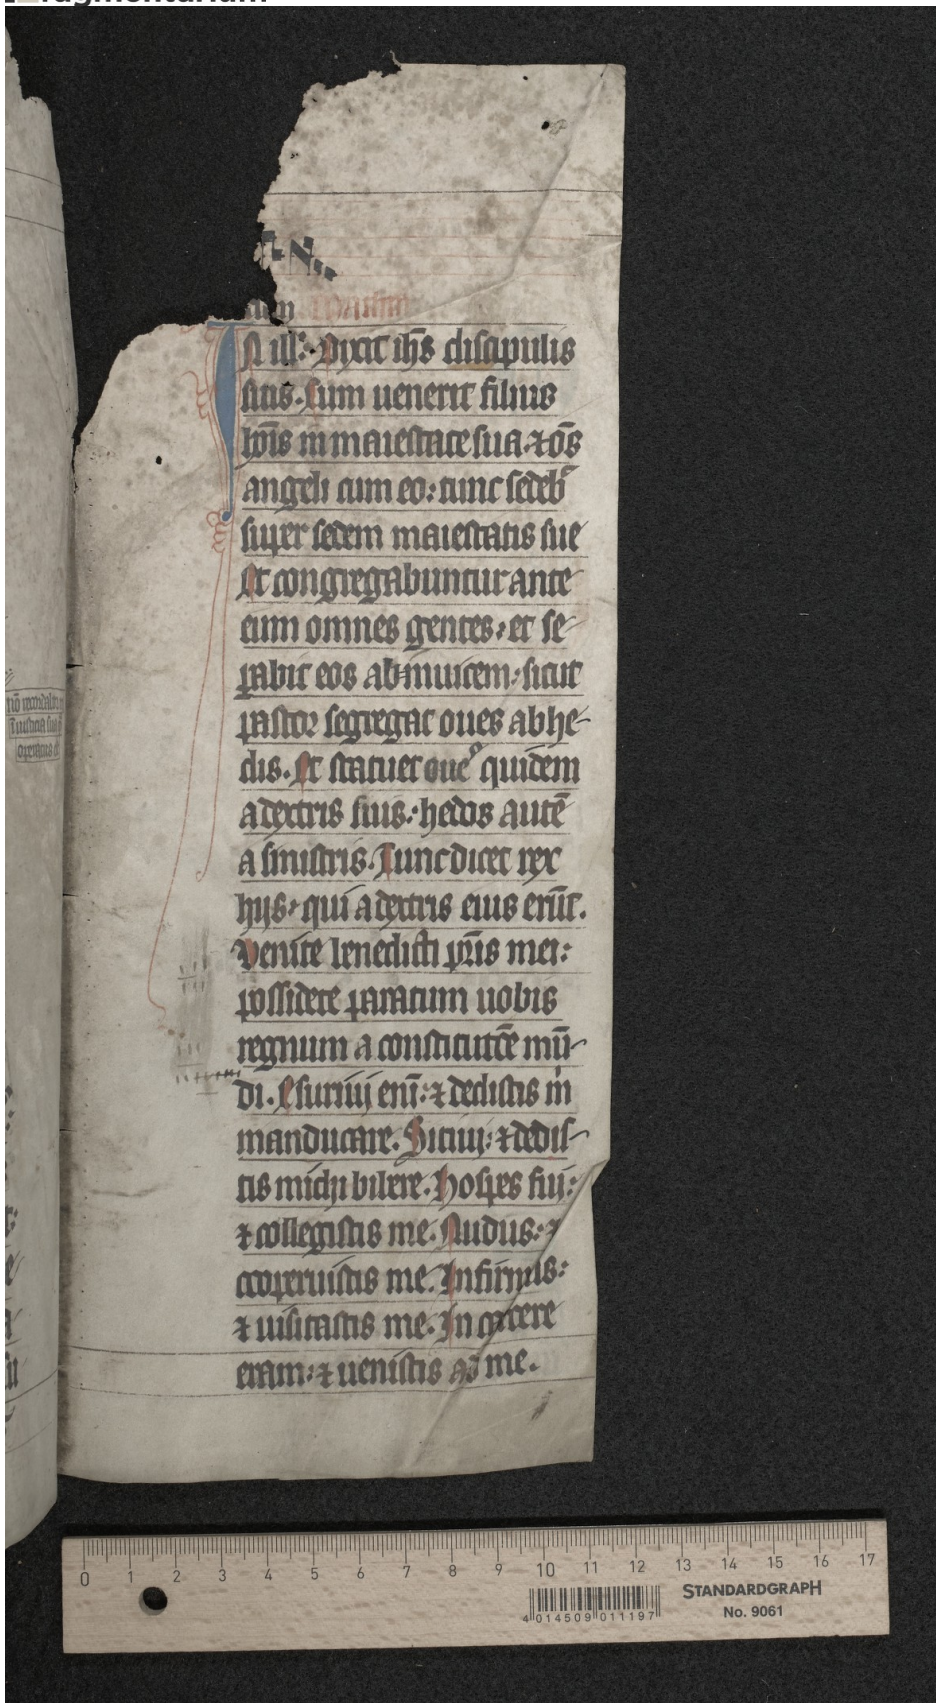 In ill'. Dixit ihs discipulis
suis. Cum uenerit filius
hois in maiestate sua ⁊ oms
angeli cum eo: tunc sedeb
super sedem maiestatis sue
Et congregabuntur ante
eum omnes gentes. et se
pabit eos abinuicem: sicut
pastor segregat oues ab he-
dis. Et statuet oues quidem
a dextris suis: hedos autē
a sinistris. Tunc dicet rex
hijs. qui a dextris eius erūt.
Venite benedicti pris mei:
possidete paratum uobis
regnum a constitutōe mū-
di. Esuriui eni: ⁊ dedistis m
manducare. Sitiui: ⁊ dedis-
tis michi bibere. Hospes fui:
⁊ collegistis me. Nudus: ⁊
cooperuistis me. Infirmus:
⁊ uisitastis me. In carcere
eram: ⁊ uenistis ad me.
0 1 2 3 4 5 6 7 8 9 10 11 12 13 14 15 16 17
STANDARDGRAPH
No. 9061
4 014509 011197